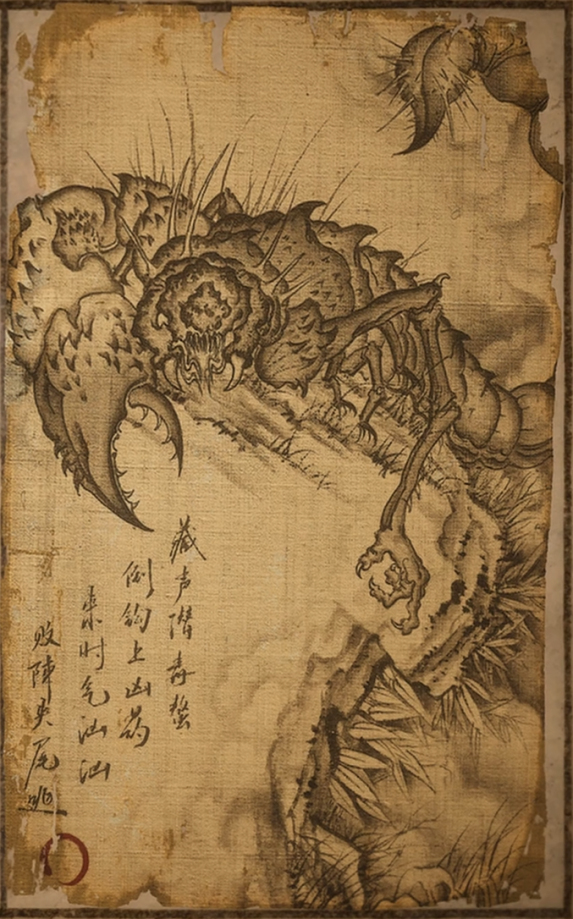 藏声潜毒螯
倒钩上凶
来时气汹汹
败阵夹尾逃